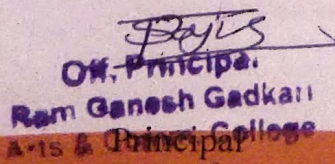 Off. Principal
Ram Ganesh Gadkari
Arts & College
Principal